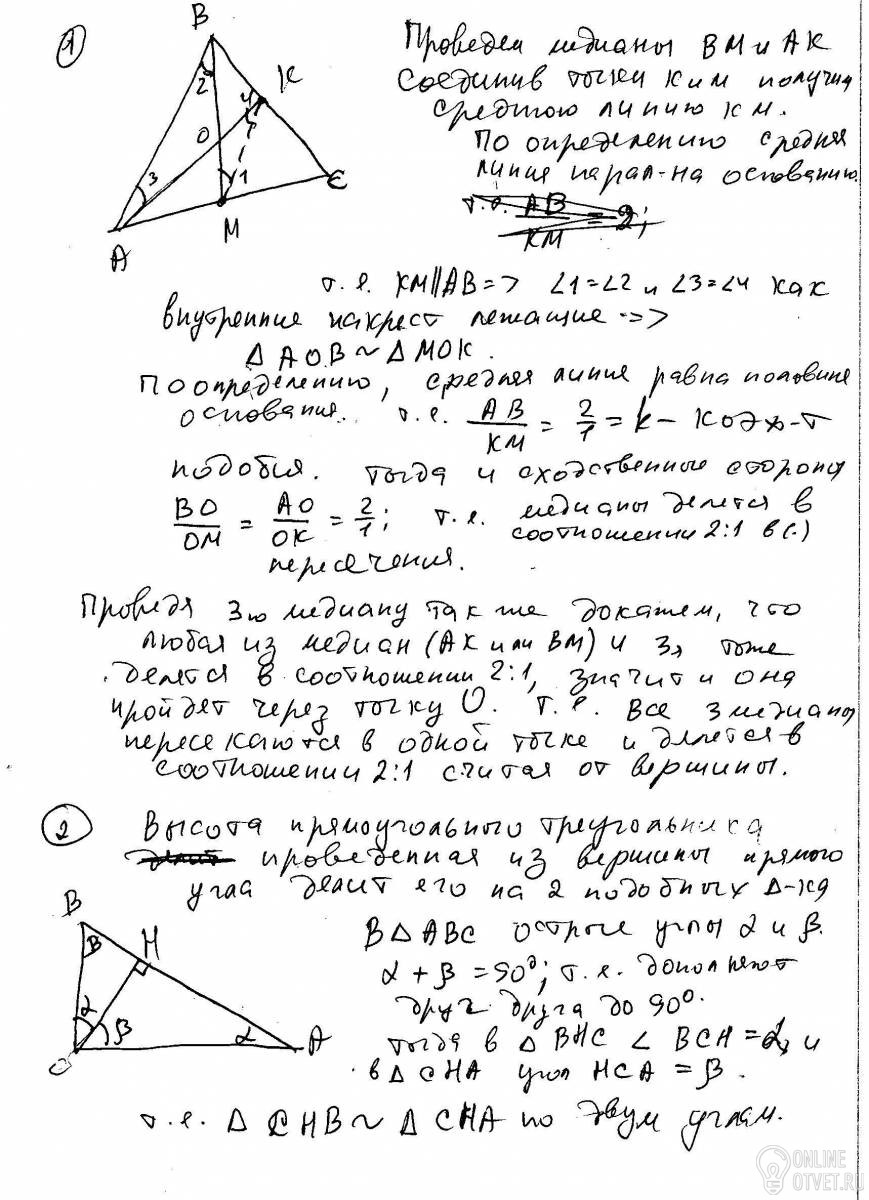 1
B
K
2
4
O
3
1
C
M
A
Проведем медианы BM и AK
соединив точки K и M получим
среднюю линию KM.
По определению средняя
линия парал-на основанию.
т.е. AB/KM = 2;
т.е. KM∥AB => ∠1=∠2 и ∠3=∠4 как
внутренние накрест лежащие =>
Δ AOB ~ Δ MOK.
По определению, средняя линия равна половине
основания. т.е. AB/KM = 2/1 = k - коэф-т
подобия. Тогда и сходственные стороны
BO/OM = AO/OK = 2/1; т.е. медианы делятся в
соотношении 2:1 в (·)
пересечения.
Проведя 3ю медиану так же докажем, что
любая из медиан (AK или BM) и 3я тоже
делятся в соотношении 2:1, значит и она
пройдет через точку O. Т.е. все 3 медианы
пересекаются в одной точке и делятся в
соотношении 2:1 считая от вершины.
2
Высота прямоугольного треугольника
делит проведенная из вершины прямого
угла делит его на 2 подобных Δ-ка
B
β
H
α
β
α
A
C
В Δ ABC острые углы α и β.
α + β = 90°; т.е. дополняют
друг друга до 90°.
тогда в Δ BHC ∠ BCH = α, и
в Δ CHA угол HCA = β.
т.е. Δ CHB ~ Δ CHA по двум углам.
ONLINE
OTVET.RU